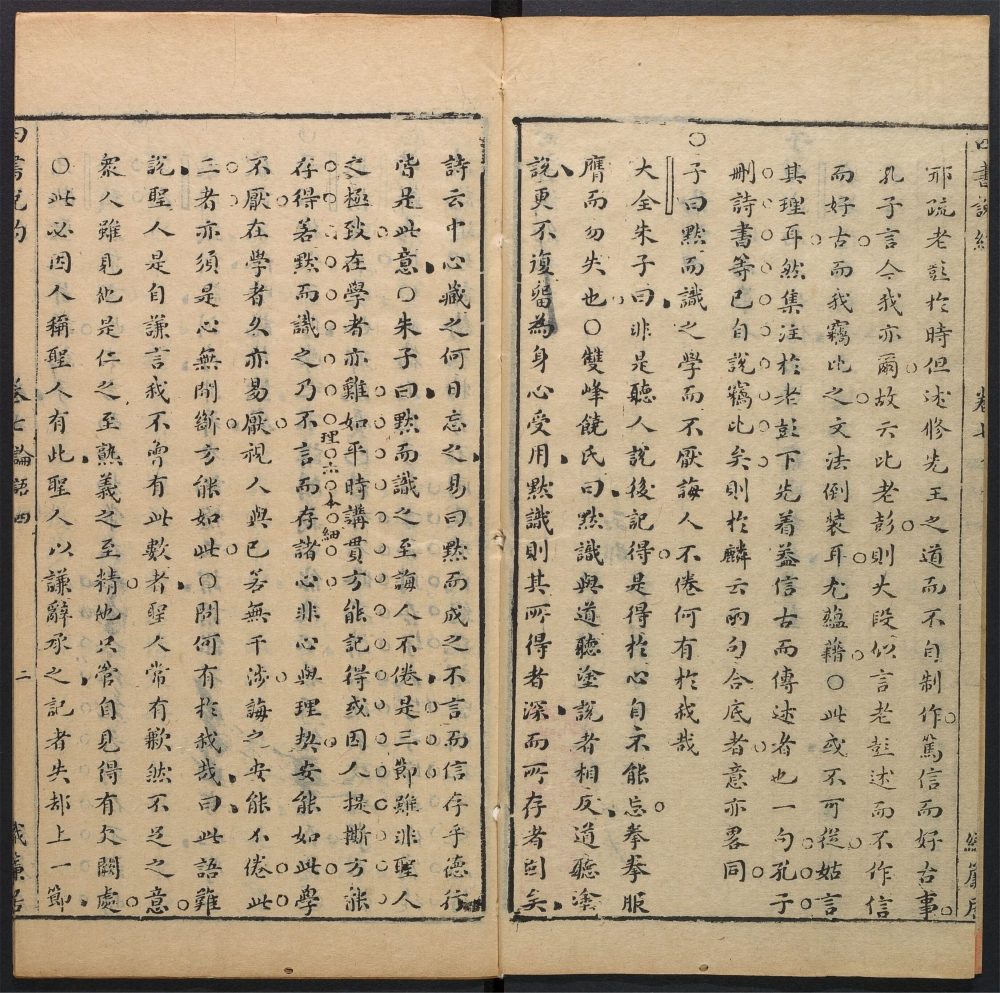 邢疏老彭於時但述修先王之道而不自制作篤信而好古事
孔子言今我亦爾故云比老彭則大段似言老彭述而不作信
而好古而我竊比之文法倒裝耳尤蘊藉〇此或不可從姑言
其理耳然集注於老彭下先着益信古而傳述者也一句孔子
刪詩書等已自說竊比矣則於麟云兩句合底者意亦畧同
〇子曰默而識之學而不厭誨人不倦何有於我哉
大全朱子曰非是聽人說後記得是得於心自不能忘拳拳服
膺而勿失也〇雙峰饒氏曰默識與道聽塗說者相反道聽塗
說更不復留為身心受用默識則其所得者深而所存者固矣
詩云中心藏之何日忘之易曰默而成之不言而信存乎德行
皆是此意〇朱子曰默而識之至誨人不倦是三節雖非聖人
之極致在學者亦難如平時講貫方能記得或因人提撕方能
存得若默而識之乃不言而存諸心非心與理契安能如此學
理 本 細
不厭在學者久亦易厭視人與己若無干涉誨之安能不倦此
二者亦須是心無間斷方能如此〇問何有於我哉曰此語難
說聖人是自謙言我不曾有此數者聖人常有歉然不足之意
眾人雖見他是仁之至熟義之至精他只管自見得有欠闕處
〇此必因人稱聖人有此聖人以謙辭承之記者失却上一節
四書說約
卷七論語四
二